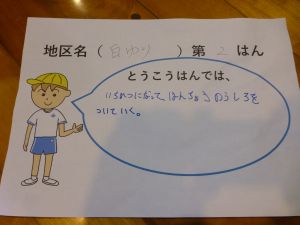 地区名（白ゆり）第2はん
とうこうはんでは、
いちれつになって、はんちょうのうしろを
ついていく。